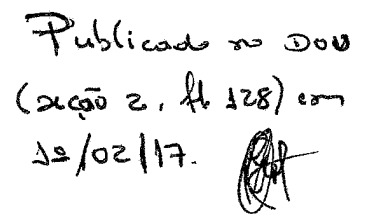 Publicado no DOU
(seção 2, fl. 128) em
1º/02/17.